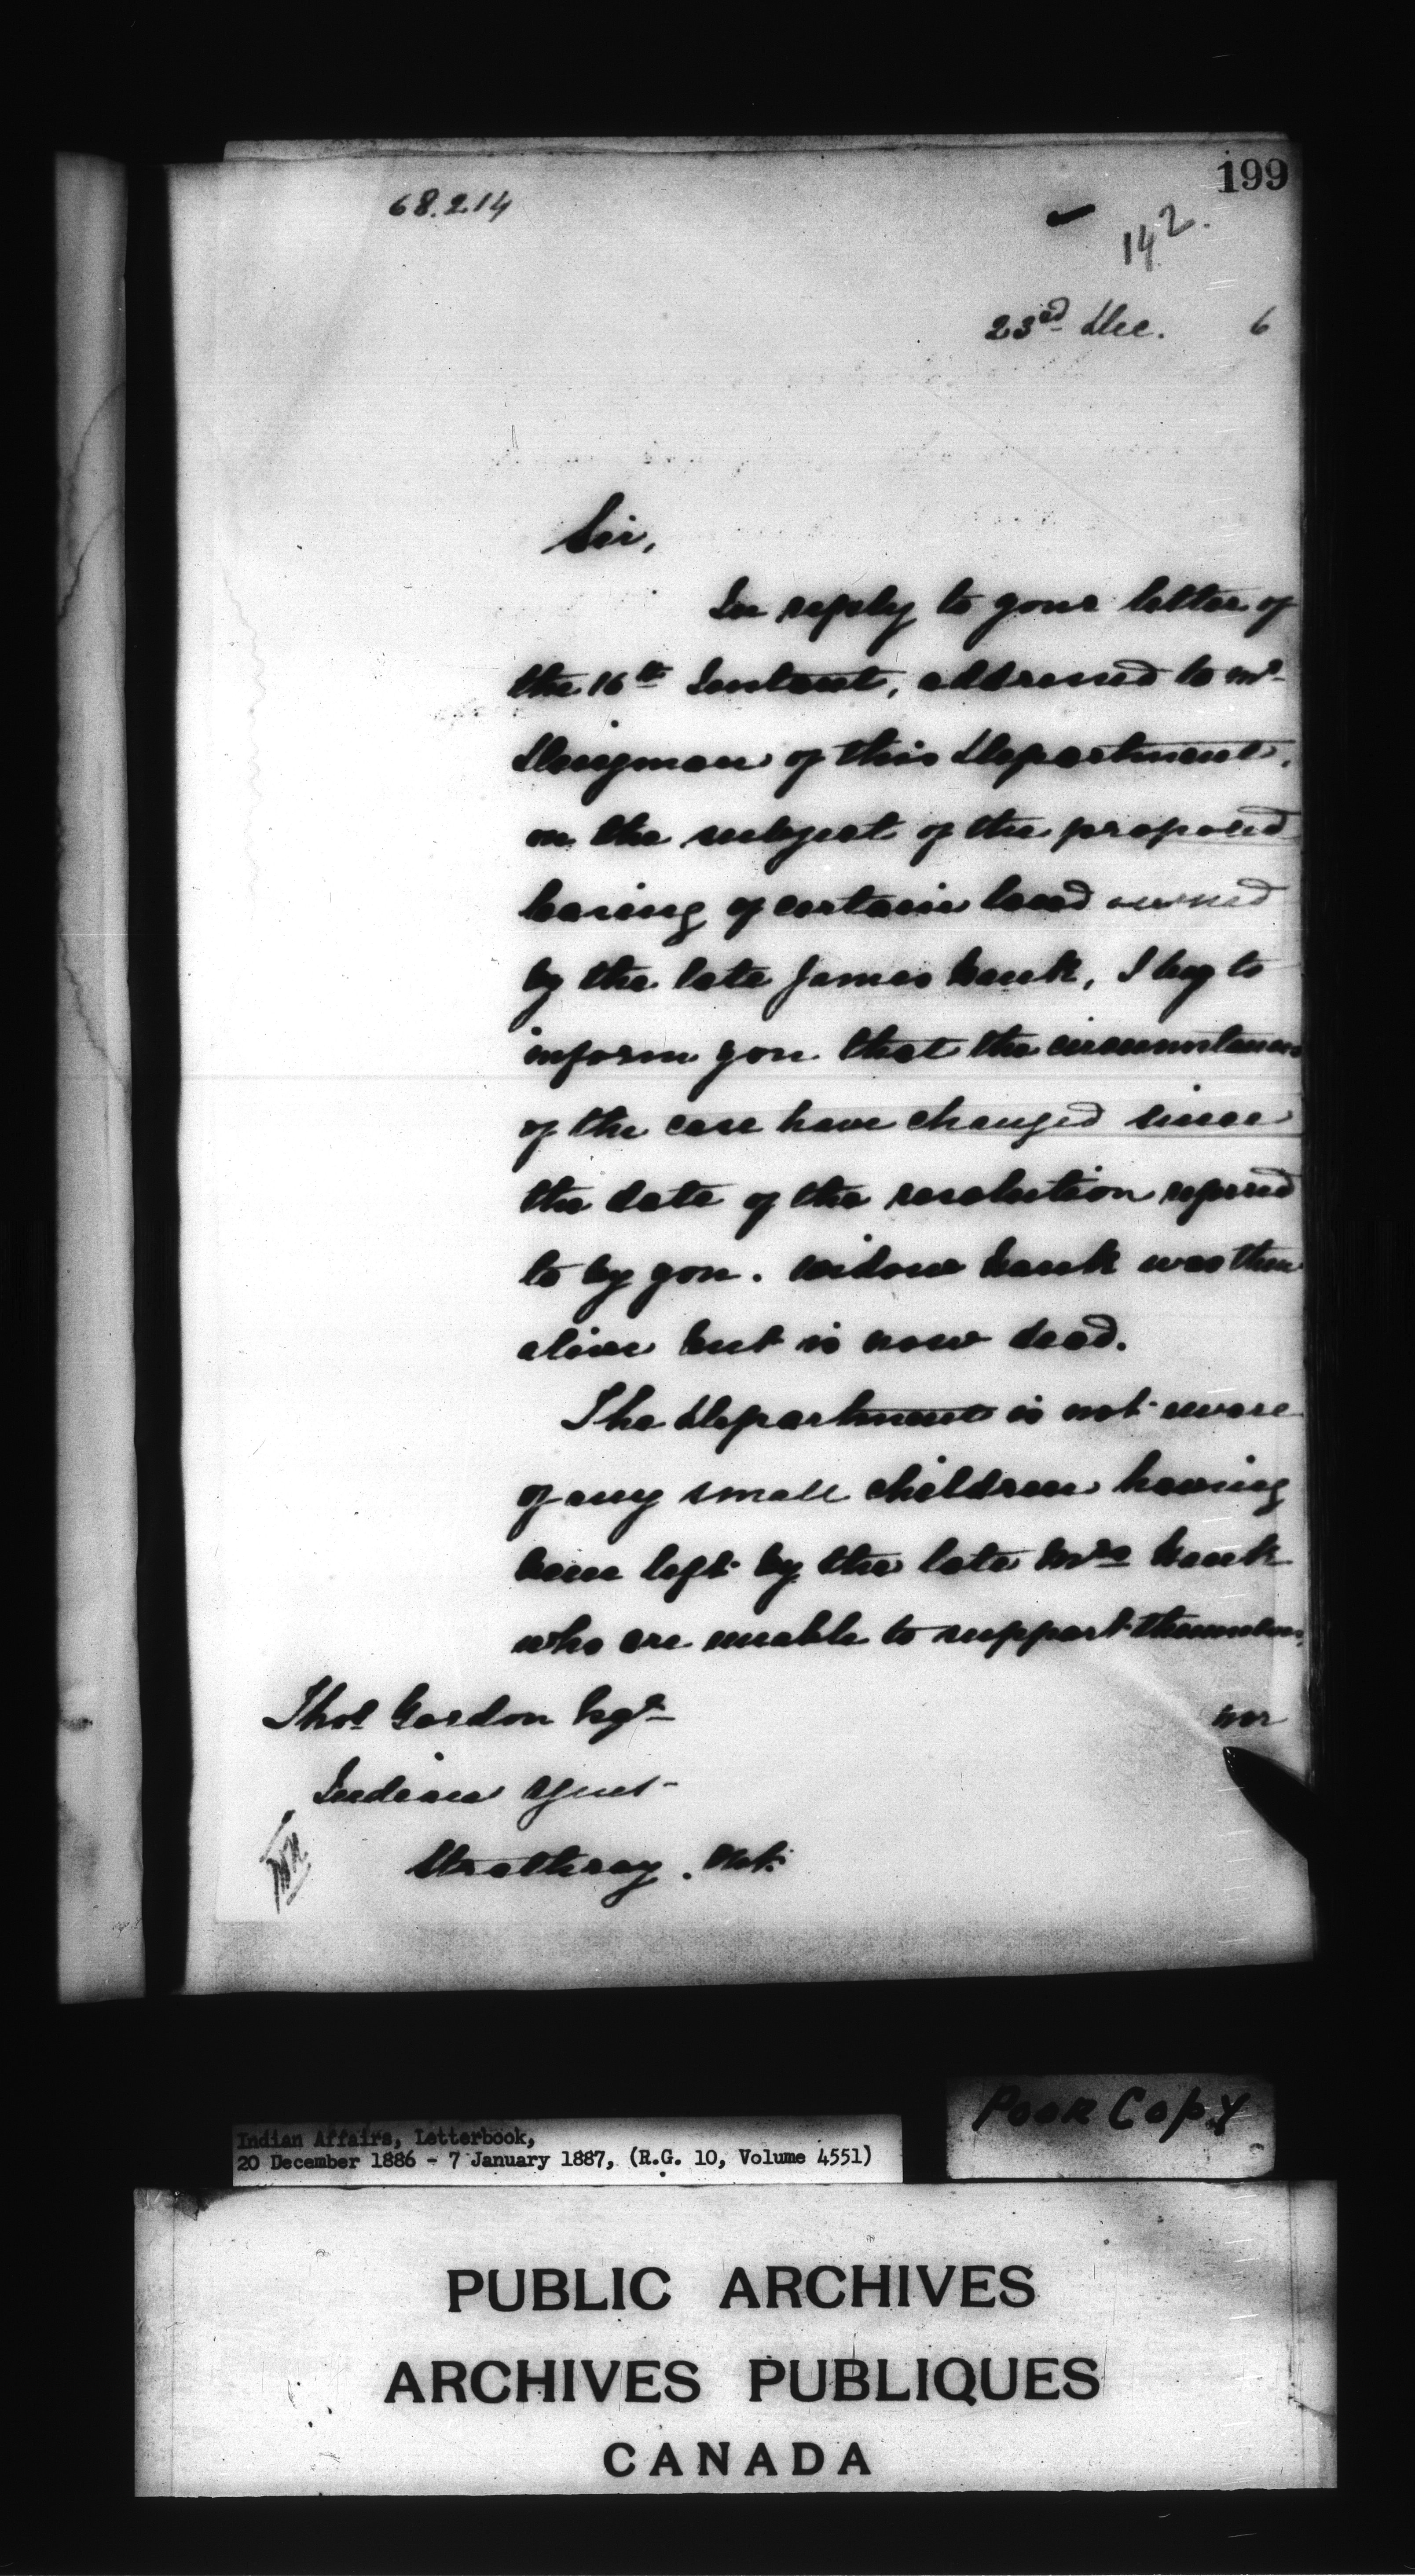 199
68.214
142.
23rd Dec. 6
Sir,
In reply to your letter of
the 16th Instant, addressed to Mr
Dingman of this Department,
on the subject of the proposed
leasing of certain land owned
by the late James Hank, I beg to
inform you that the circumstances
of the case have changed since
the date of the resolution referred
to by you. Widow Hank was then
alive but is now dead.
The Department is not aware
of any small children having
been left by the late Mrs Hank
who are unable to support themselves,
Thos Gordon Esqr
Indian Agent
Strathroy. Ont.
Poor Copy
Indian Affairs, Letterbook,
20 December 1886 - 7 January 1887, (R.G. 10, Volume 4551)
PUBLIC ARCHIVES
ARCHIVES PUBLIQUES
CANADA